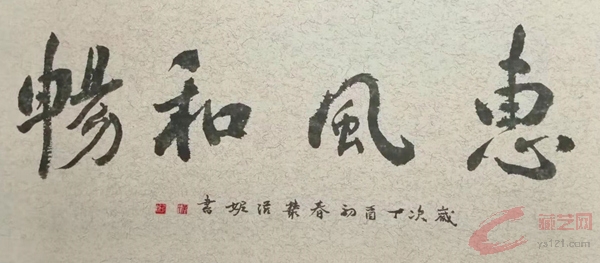 惠風和暢
歲次丁酉初春葉浩妮書
藏艺网
ys121.com